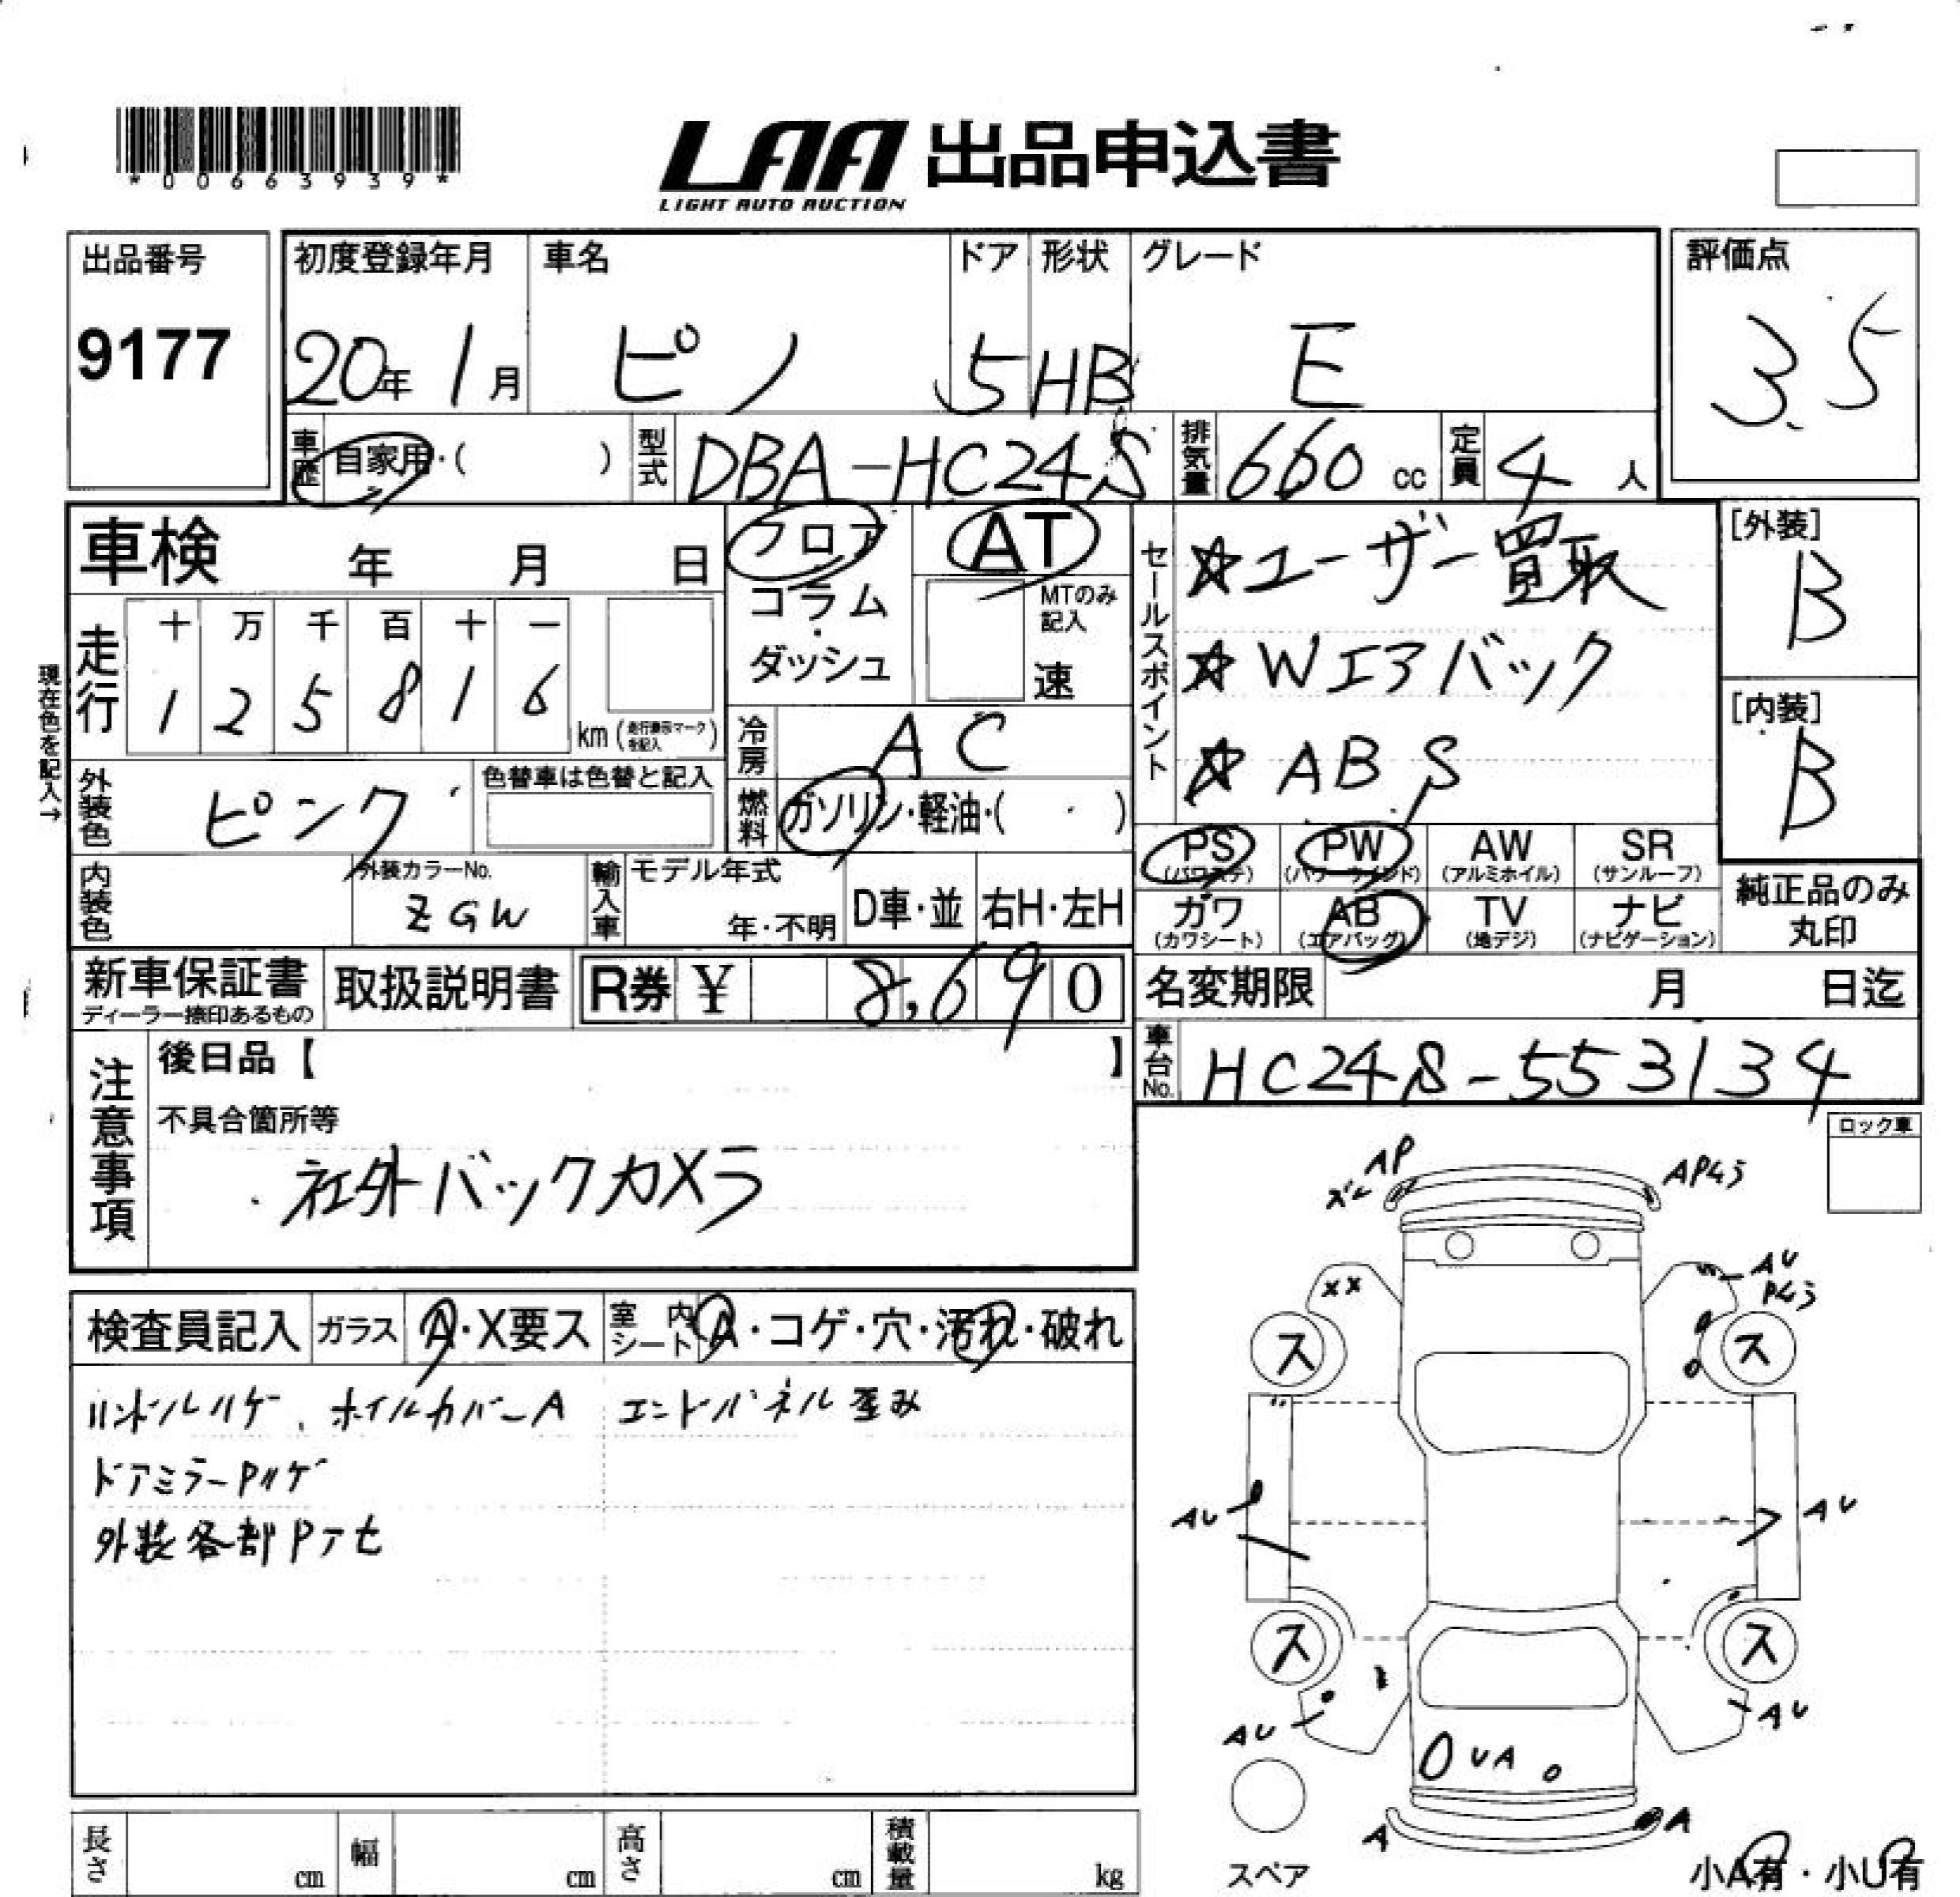 *00663939*
LAA 出品申込書
LIGHT AUTO AUCTION
出品番号
9177
初度登録年月 車名 ドア 形状 グレード
20年 1月 ピノ 5 HB E
評価点
3.5
車歴 自家用・( ) 型式 DBA-HC24S 排気量 660 cc 定員 4 人
車検 年 月 日
フロア
コラム
・
ダッシュ
AT
MTのみ
記入
速
セールスポイント
☆ユーザー買取
☆Wエアバック
☆ABS
[外装]
B
[内装]
B
現在色を記入→
走行
十 万 千 百 十 一
1 2 5 8 1 6
km (走行表示マークを記入)
冷房 AC
燃料 ガソリン・軽油・( )
外装色 ピンク
色替車は色替と記入
内装色
外装カラーNo.
ZGW
輸入車 モデル年式
年・不明
D車・並 右H・左H
PS (パワステ) PW (パワーウインド) AW (アルミホイル) SR (サンルーフ)
カワ (カワシート) AB (エアバッグ) TV (地デジ) ナビ (ナビゲーション)
純正品のみ
丸印
新車保証書
ディーラー捺印あるもの
取扱説明書 R券 ¥ 8,690
名変期限 月 日迄
車台No. HC24S-553134
注意事項
後日品【 】
不具合箇所等
社外バックカメラ
ロック車
検査員記入 ガラス A・X要ス 室内シート A・コゲ・穴・汚れ・破れ
ハンドルハゲ、ホイルカバーA エンドパネル歪み
ドアミラーPハゲ
外装各部Pアセ
AP
ズレ
APキズ
XX
AU
Pキズ
ス
ス
AU
AU
ス
ス
AU
AU
UA
A
A
スペア
小A有・小U有
長さ cm 幅 cm 高さ cm 積載量 kg